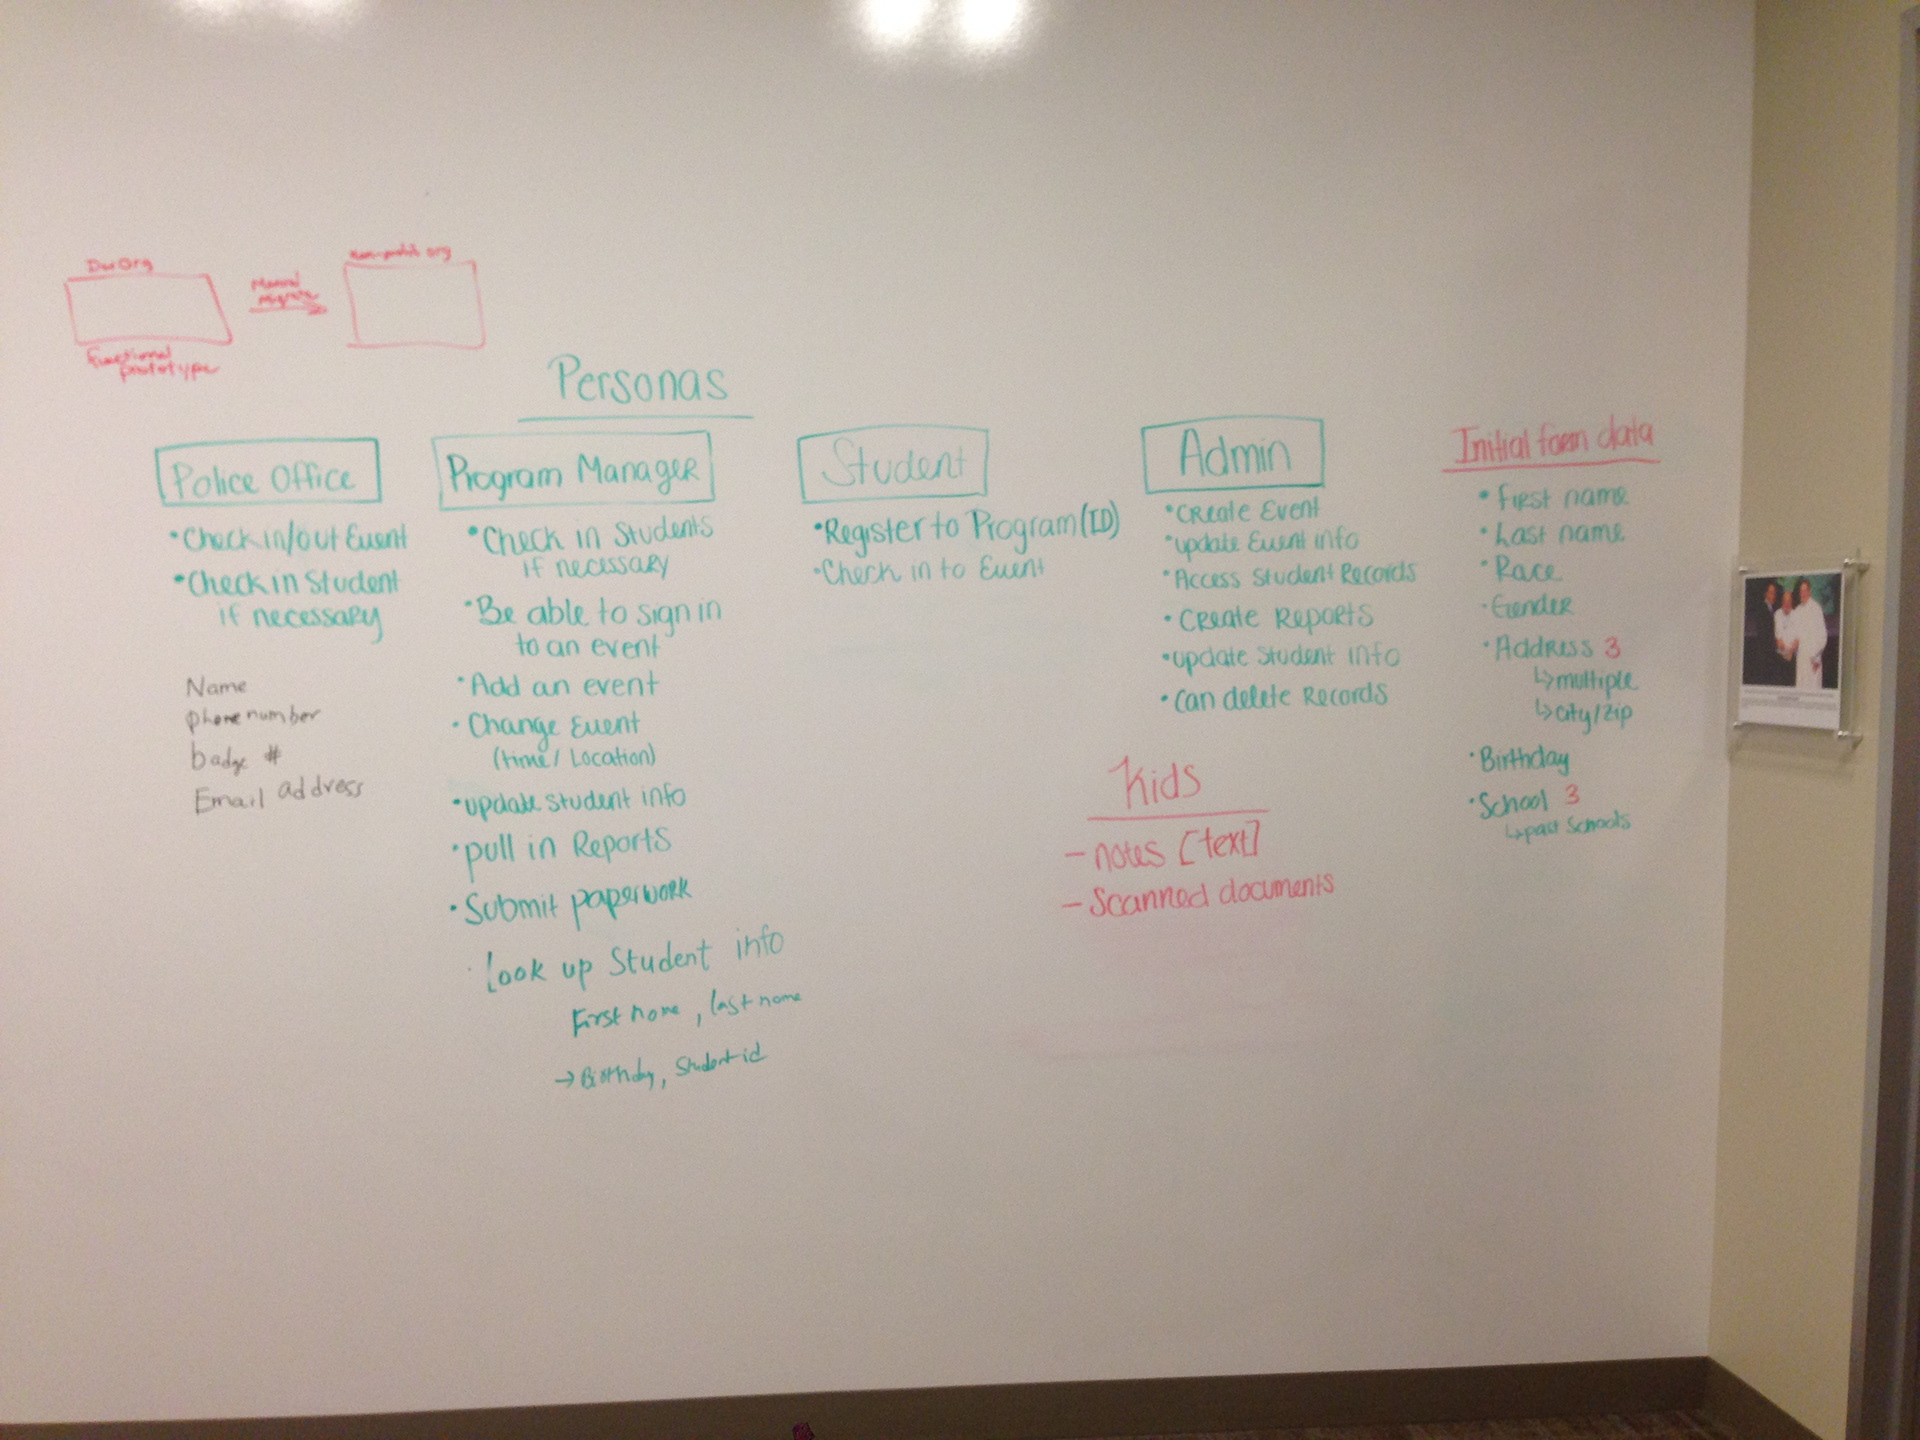 Dev Org
Manual
Migrate
Non-profit org
Functional
prototype
Personas
Police Office
• Check in/out Event
• Check in Student
if necessary
Name
phone number
badge #
Email address
Program Manager
• Check in Students
if necessary
• Be able to sign in
to an event
• Add an event
• Change Event
(time/ Location)
• update student info
• pull in Reports
• Submit paperwork
• Look up Student info
First name, last name
→ Birthday, Student id
Student
• Register to Program (ID)
• Check in to Event
Admin
• Create Event
• update Event info
• Access Student Records
• Create Reports
• update Student info
• Can delete Records
Kids
- notes [text]
- Scanned documents
Initial form data
• First name
• Last name
• Race
• Gender
• Address 3
↳ multiple
↳ city/zip
• Birthday
• School 3
↳ past schools